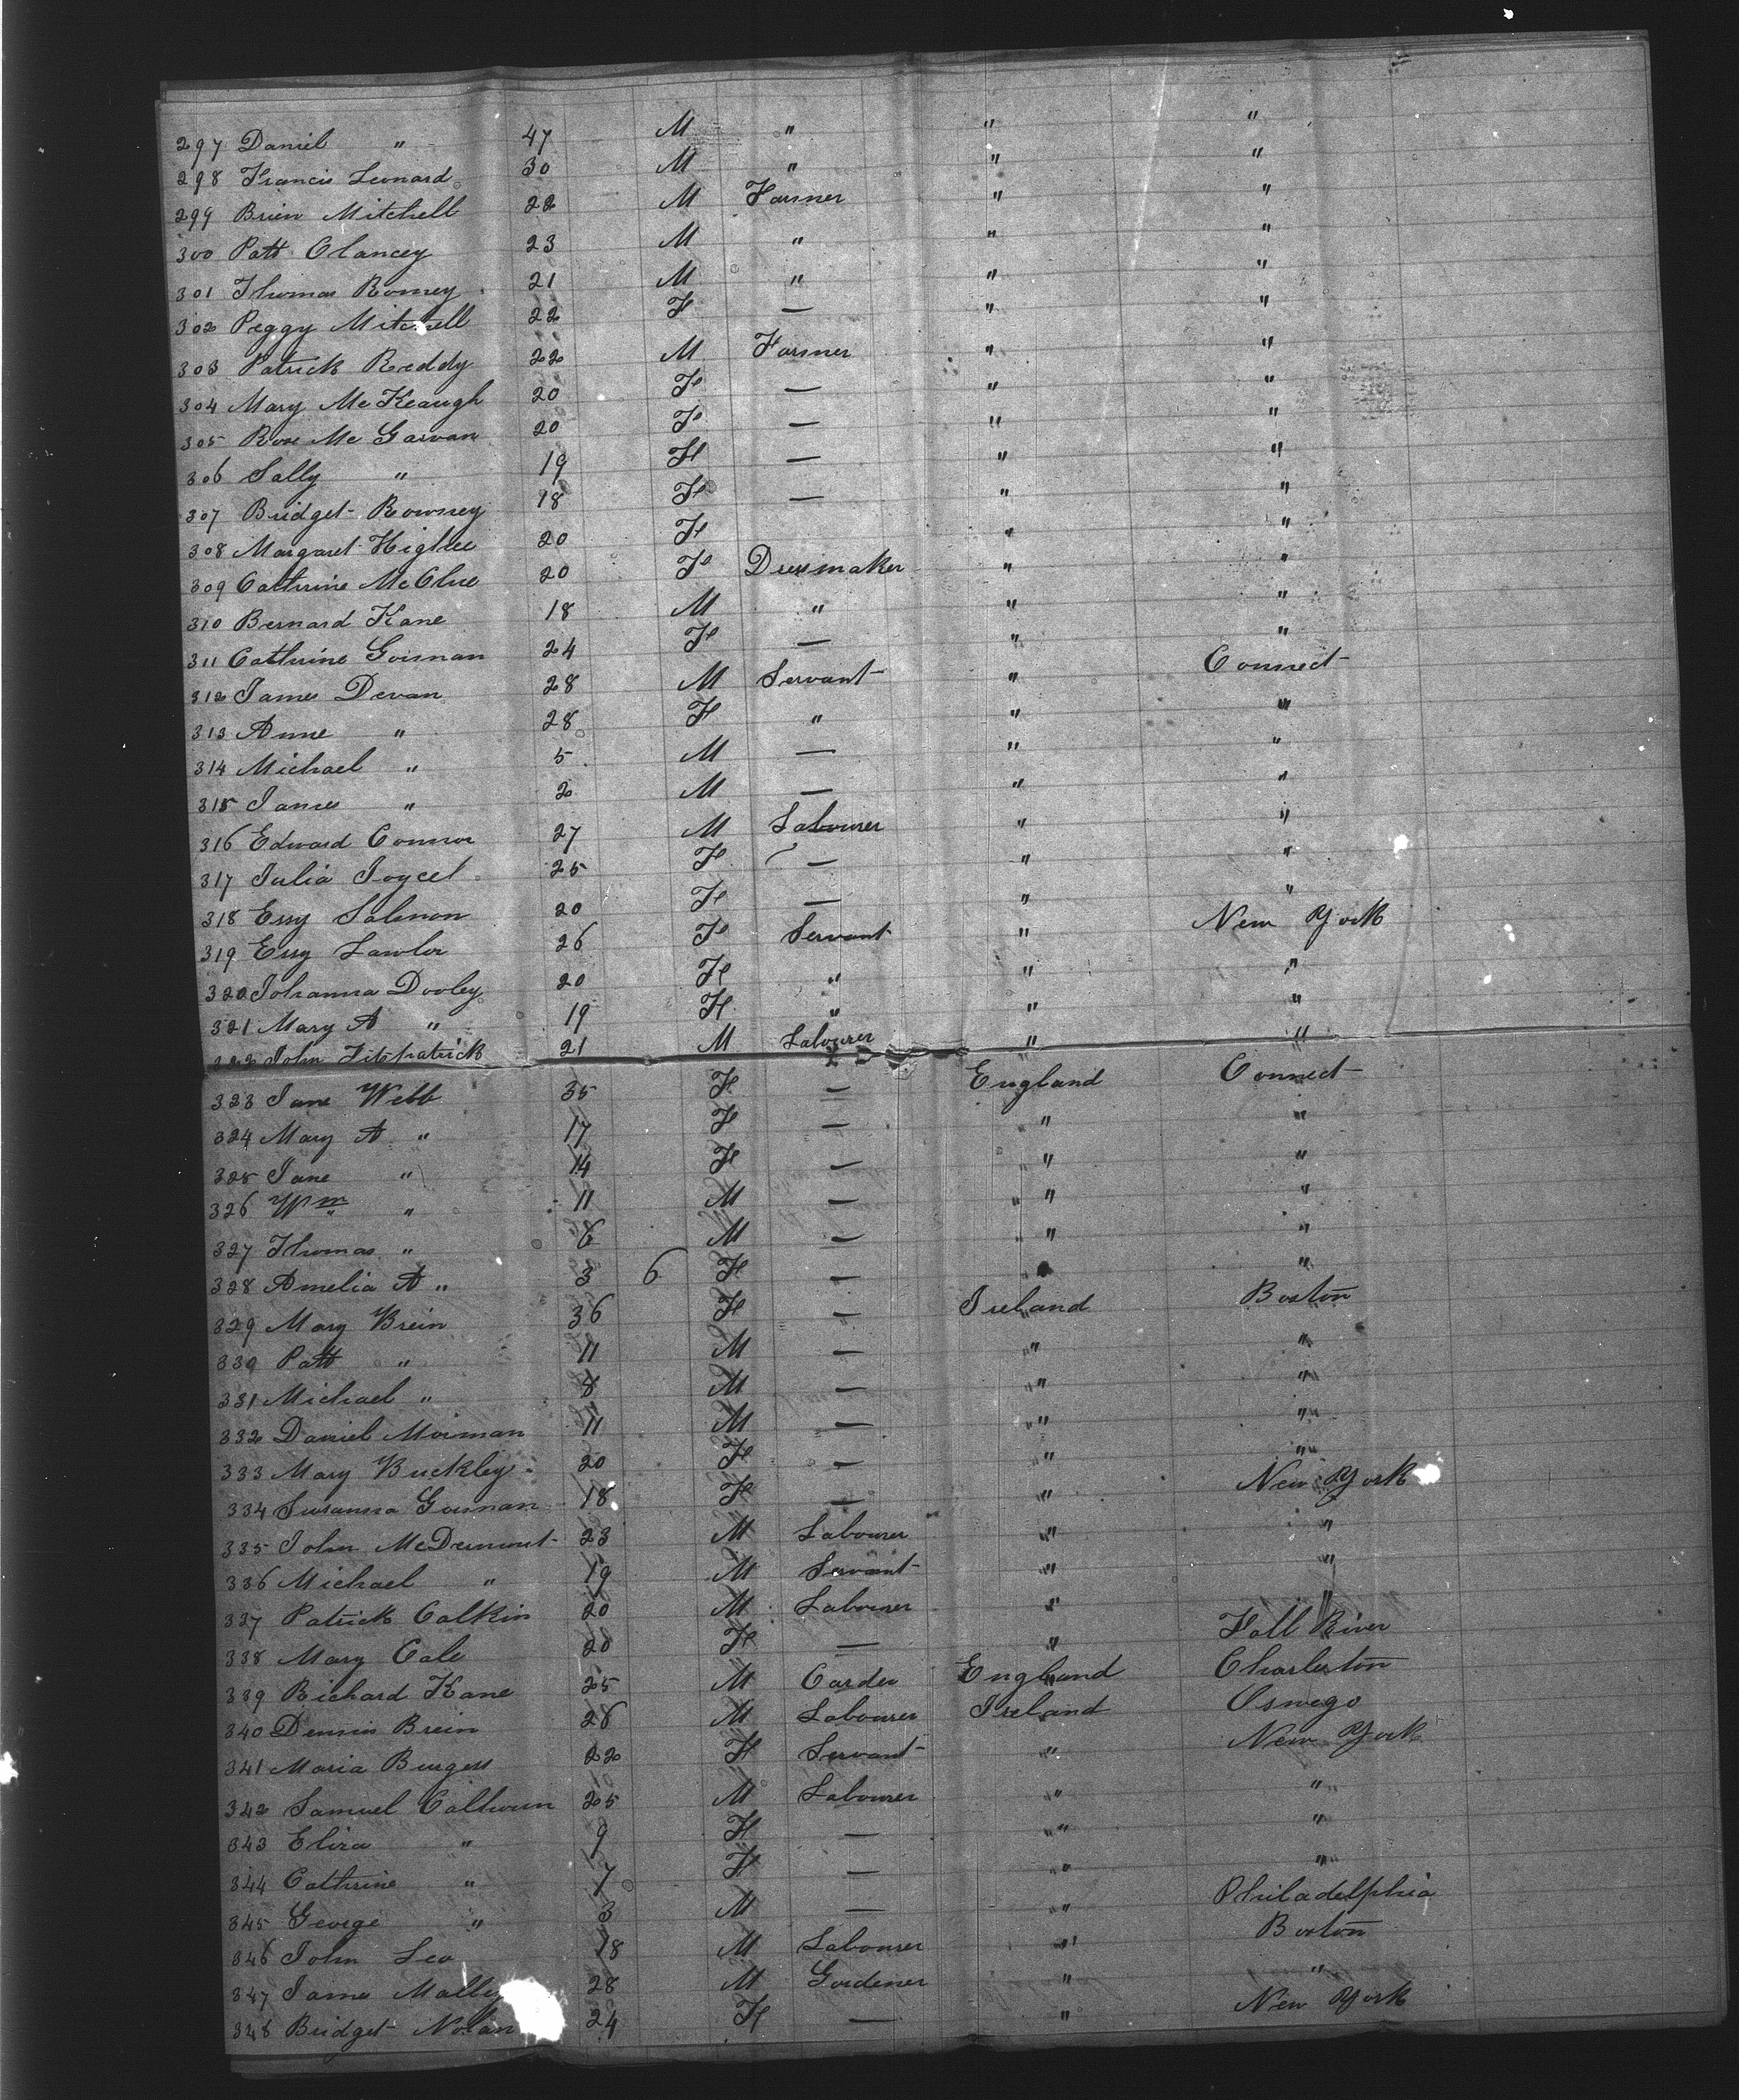 297 Daniel " 47 M " " "
298 Francis Leonard 30 M " " "
299 Brien Mitchell 22 M Farmer " "
300 Patt Clancey 23 M " " "
301 Thomas Romey 21 M " " "
302 Peggy Mitchell 22 F — " "
303 Patrick Reddy 22 M Farmer " "
304 Mary McKeaugh 20 F — " "
305 Rose Mc Garvan 20 F — " "
306 Sally " 19 F — " "
307 Bridget Rowney 18 F — " "
308 Margaret 20 F " "
309 Cathrine McClue 20 F Dressmaker " "
310 Bernard Kane 18 M " " "
311 Cathrine Goisnan 24 F — " "
312 James Devan 28 M Servant " Connect
313 Anne " 28 F " " "
314 Michael " 5 M — " "
315 James " 2 M — " "
316 Edward Connor 27 M Labourer " "
317 Julia Joycel 25 F — " "
318 Essy Salmon 20 F — " "
319 Essy Lawlor 26 F Servant " New York
320 Johanna Dooley 20 F " " "
321 Mary A " 19 F " " "
322 John Fitzpatrick 21 M Labourer " "
323 Jane Webb 35 F — England Connect
324 Mary A " 17 F — " "
325 Jane " 14 F — " "
326 Wm " 11 M — " "
327 Thomas " 6 M — " "
328 Amelia A " 3 6 F — " "
329 Mary Brein 36 F — Ireland Boston
330 Patt " 11 M — " "
331 Michael " 8 M — " "
332 Daniel Moirnan 11 M — " "
333 Mary Buckley 20 F — " "
334 Susanna Gournan 18 F — " New York
335 John McDermont 23 M Labourer " "
336 Michael " 19 M Servant " "
337 Patrick Calkin 20 M Labourer " "
338 Mary Cale 20 F — " Fall River
339 Richard Kane 25 M Carder England Charleston
340 Dennis Brein 26 M Labourer Ireland Oswego
341 Maria Burgess 22 F Servant " New York
342 Samuel Calhoun 25 M Labourer " "
343 Eliza " 9 F — " "
344 Cathrine " 7 F — " "
345 George " 3 M — " Philadelphia
346 John Leo 18 M Labourer " Boston
347 James Mally 28 M Gardener " "
348 Bridget Nolan 24 F — " New York